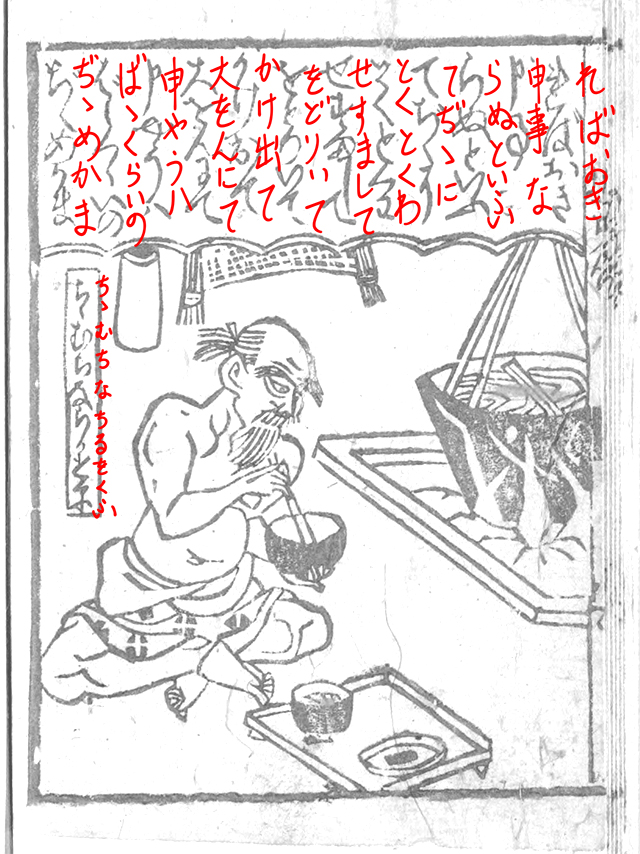 ればおき
申事な
らぬといふ
てぢゝに
とくとくわ
せすまして
をどりいて
かけ出て
大をんにて
申やうハ
ばゝくらいの
ぢゝめかま
ちゝむちなちるをくふ